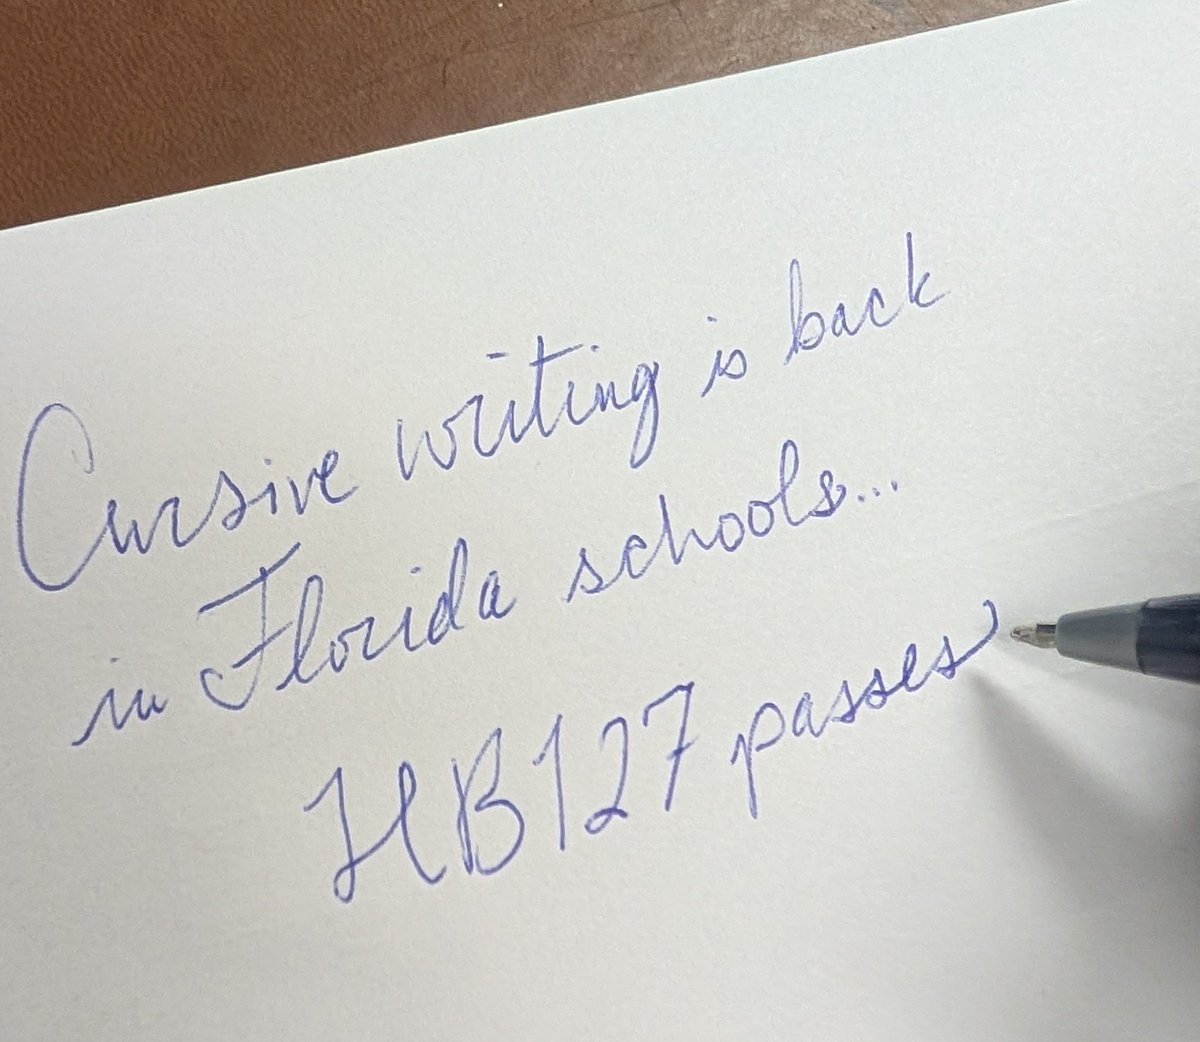 Cursive writing is back
in Florida schools...
HB127 passes